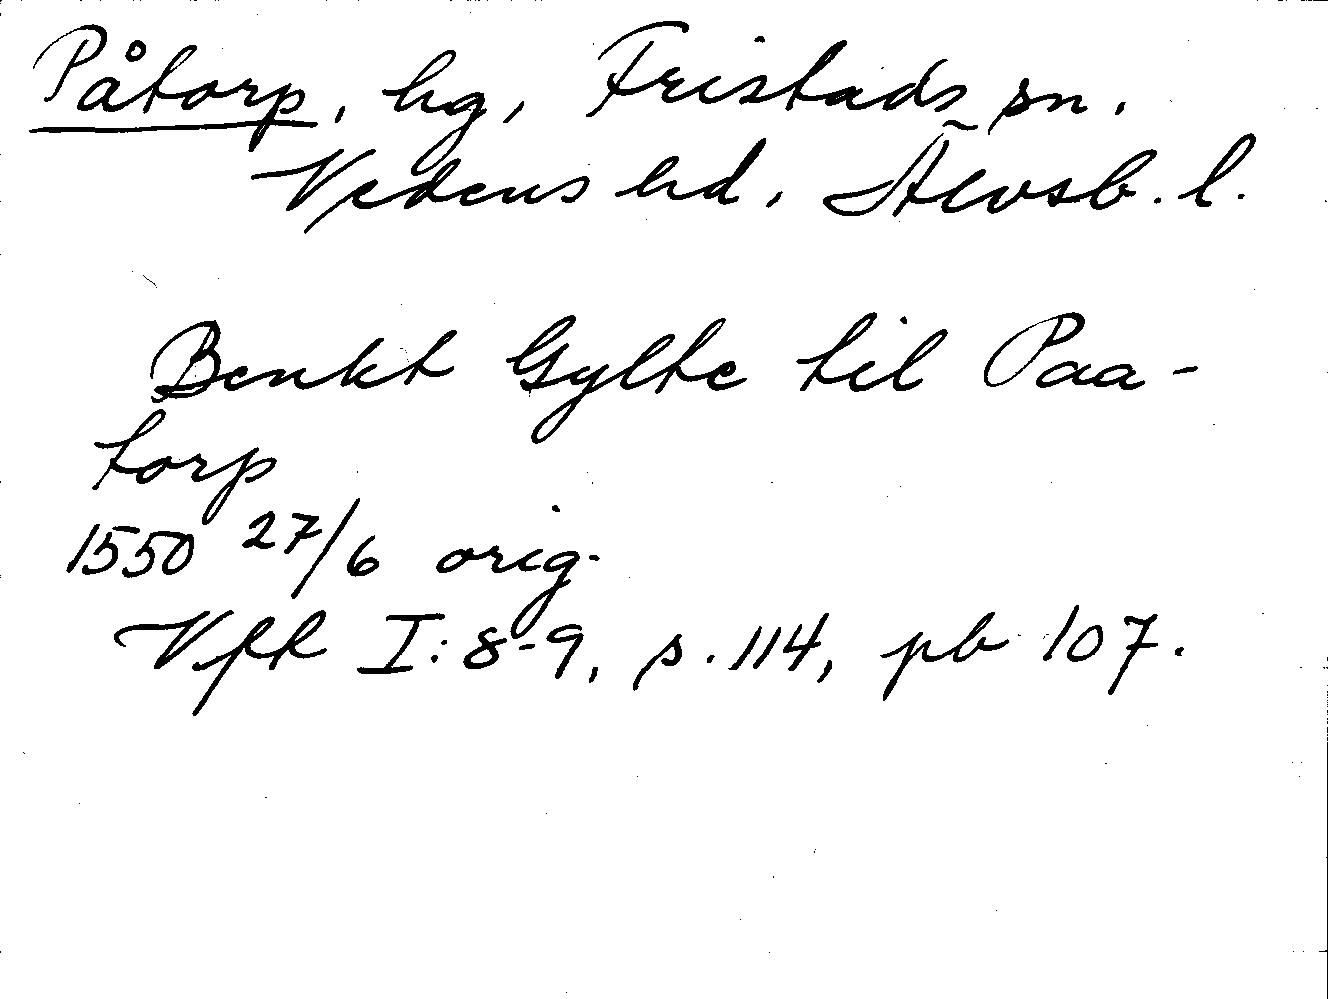 Påtorp, hg, Fristads sn.
Vedens hd, Älvsb. l.
Benkt Gylte til Paa-
torp
1550 27/6 orig.
Vfk I:8-9, s. 114, pb 107.